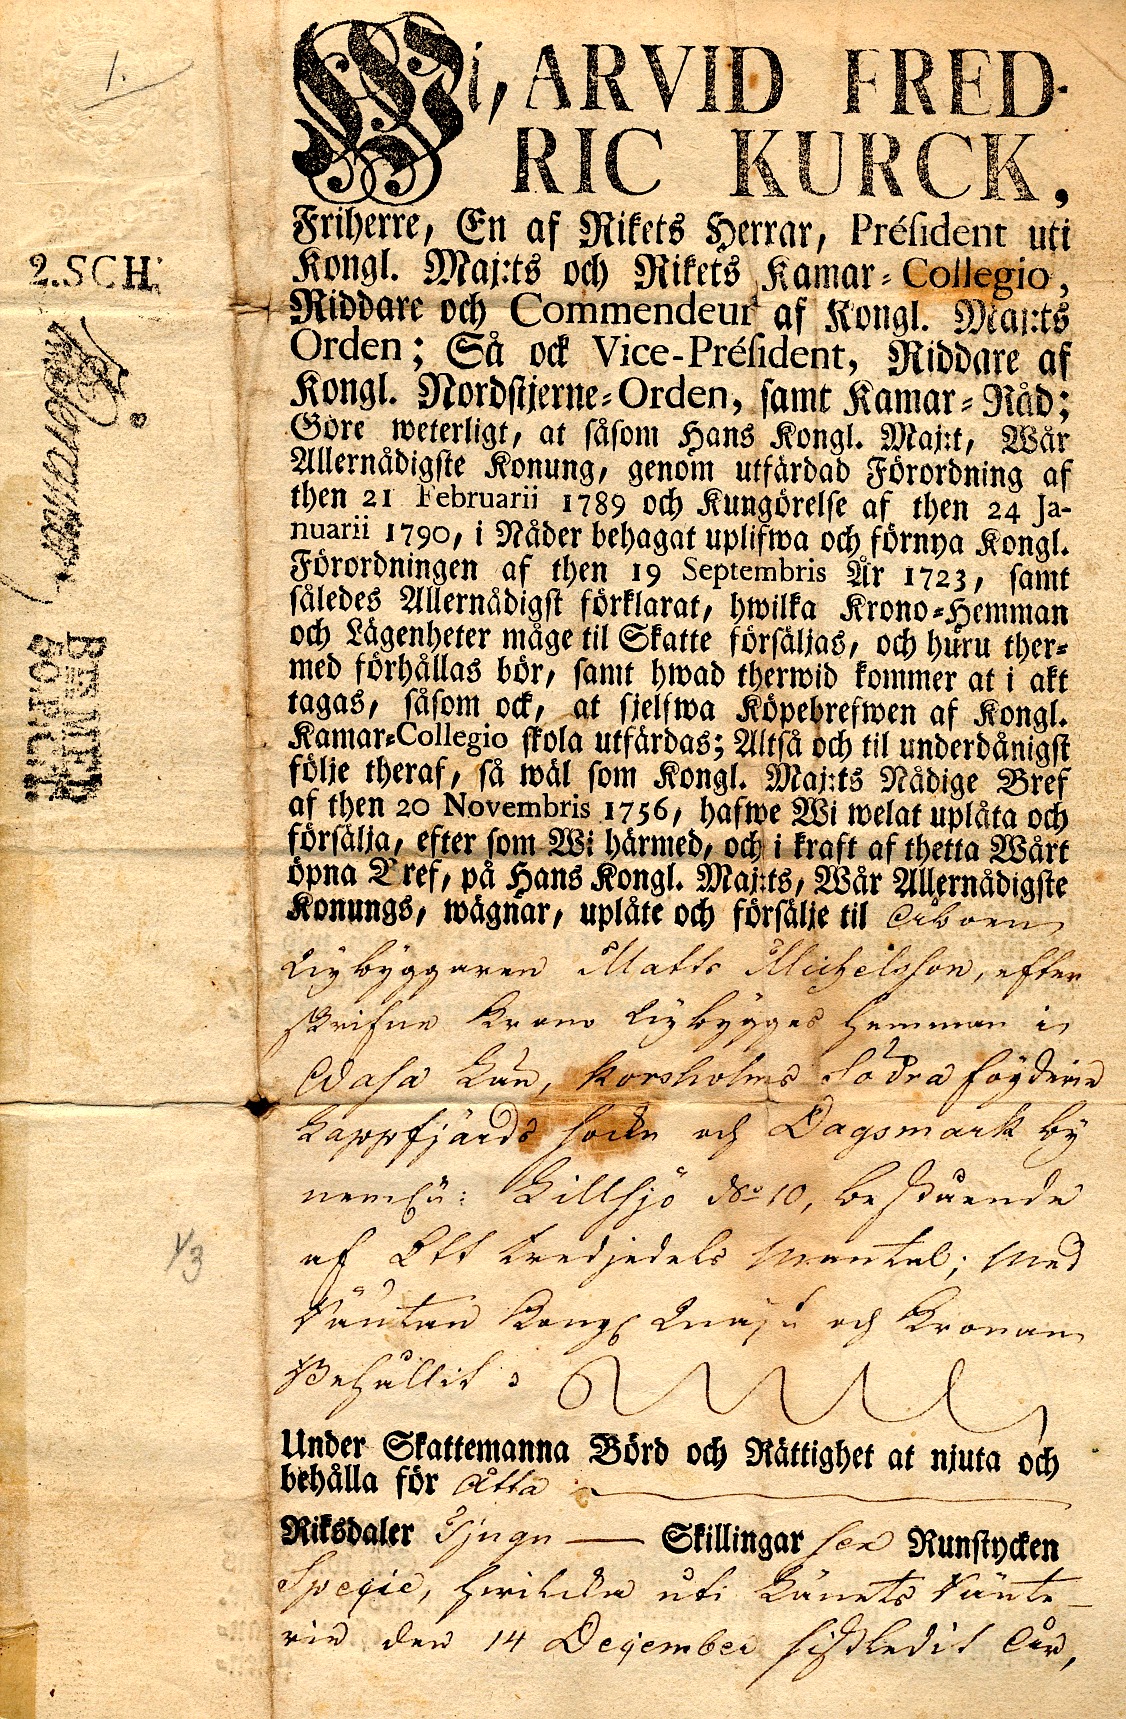 1.
Wi, ARVID FRED-
RIC KURCK,
Friherre, En af Rikets Herrar, Président uti
Kongl. Maj:ts och Rikets Kamar-Collegio,
Riddare och Commendeur af Kongl. Maj:ts
Orden; Så ock Vice-Président, Riddare af
Kongl. Nordstjerne-Orden, samt Kamar-Råd;
Göre weterligt, at såsom Hans Kongl. Maj:t, Wår
Allernådigste Konung, genom utfärdad Förordning af
then 21 Februarii 1789 och Kungörelse af then 24 Ja-
nuarii 1790, i Nåder behagat uplifwa och förnya Kongl.
Förordningen af then 19 Septembris År 1723, samt
således Allernådigst förklarat, hwilka Krono-Hemman
och Lägenheter måge til Skatte försäljas, och huru ther-
med förhållas bör, samt hwad therwid kommer at i akt
tagas, såsom ock, at sjelfwa Köpebrefwen af Kongl.
Kamar-Collegio skola utfärdas; Altså och til underdånigst
följe theraf, så wäl som Kongl. Maj:ts Nådige Bref
af then 20 Novembris 1756, hafwe Wi welat uplåta och
försälja, efter som Wi härmed, och i kraft af thetta Wårt
öpna Bref, på Hans Kongl. Maj:ts, Wår Allernådigste
Konungs, wägnar, uplåte och försälje til Åboen
Nybyggaren Matts Michelsson, efter
skrifne Krono Nybygges Hemman i
Wasa Län, Korsholms Södra fögderie
Lappfjärds sockn och Dagsmark by
neml: Lillsjö No 10, bestående
af Ett tredjedels mantal; Med
räntan Kongl Maj:t och Kronan
Behållit:
Under Skattemanna Börd och Rättighet at njuta och
behålla för Åtta
Riksdaler Tjugu Skillingar sex Runstycken
Specie, hwilcka uti Länets Ränte-
rie den 14 December sistledit År,
2.SCH.
1/3